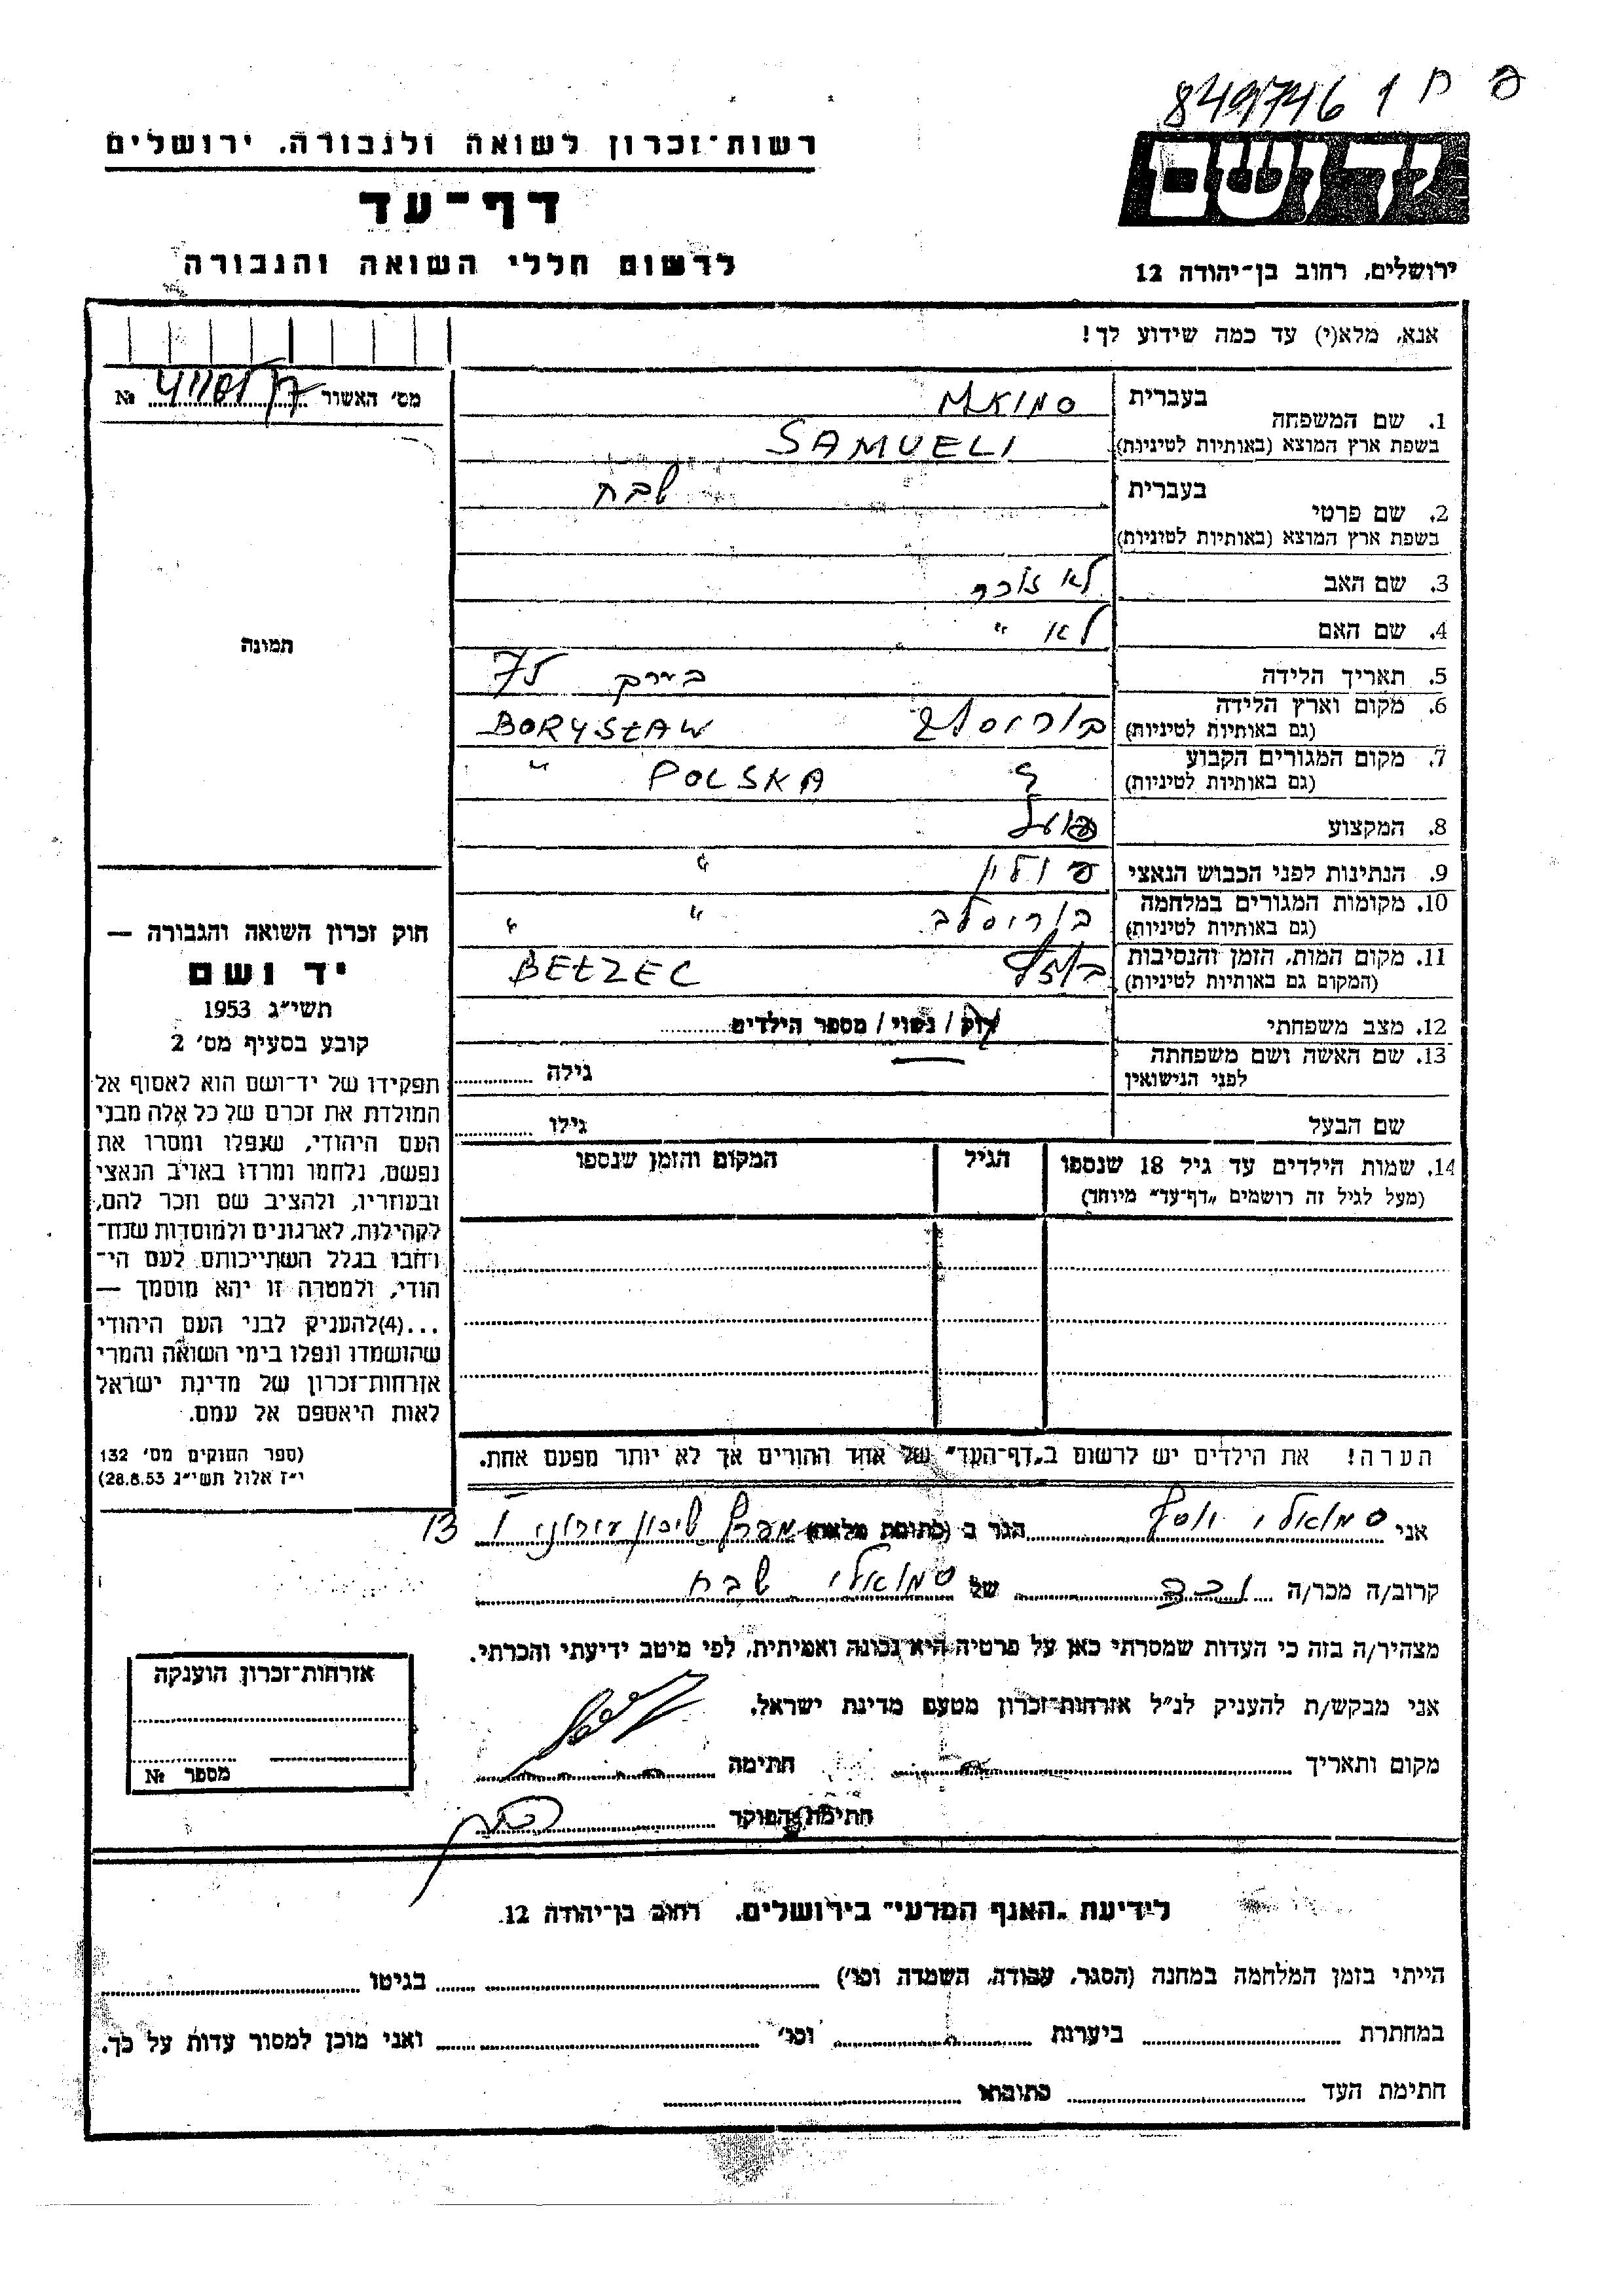 849746 1 ח פ
רשות־זכרון לשואה ולגבורה. ירושלים
יד ושם
דף־עד
לרשום חללי השואה והגבורה
ירושלים, רחוב בן־יהודה 12
אנא, מלא(י) עד כמה שידוע לך!
מס׳ האשור №
1. שם המשפחה
בעברית
בשפת ארץ המוצא (באותיות לטיניות)
SAMUELI
2. שם פרטי
בעברית שבח
בשפת ארץ המוצא (באותיות לטיניות)
3. שם האב לא זוכר
4. שם האם לא "
תמונה
5. תאריך הלידה בערך 75
6. מקום וארץ הלידה בוריסלב BORYSŁAW
(גם באותיות לטיניות)
7. מקום המגורים הקבוע POLSKA "
(גם באותיות לטיניות)
8. המקצוע פועל
9. הנתינות לפני הכבוש הנאצי פולין "
10. מקומות המגורים במלחמה בוריסלב " "
(גם באותיות לטיניות)
11. מקום המות, הזמן והנסיבות BEŁZEC
(המקום גם באותיות לטיניות)
12. מצב משפחתי רוק / נשוי / מספר הילדים
13. שם האשה ושם משפחתה גילה
לפני הנישואין
שם הבעל גילו
14. שמות הילדים עד גיל 18 שנספו הגיל המקום והזמן שנספו
(מעל לגיל זה רושמים „דף־עד״ מיוחד)
חוק זכרון השואה והגבורה —
יד ושם
תשי״ג 1953
קובע בסעיף מס׳ 2
תפקידו של יד־ושם הוא לאסוף אל
המולדת את זכרם של כל אלה מבני
העם היהודי, שנפלו ומסרו את
נפשם, נלחמו ומרדו באויב הנאצי
ובעוזריו, ולהציב שם וזכר להם,
לקהילות, לארגונים ולמוסדות שנח־
רבו בגלל השתייכותם לעם הי־
הודי, ולמטרה זו יהא מוסמך —
...(4) להעניק לבני העם היהודי
שהושמדו ונפלו בימי השואה והמרי
אזרחות־זכרון של מדינת ישראל
לאות היאספם אל עמם.
(ספר החוקים מס׳ 132
י״ז אלול תשי״ג 28.8.53)
הערה! את הילדים יש לרשום ב„דף־העד״ של אחד ההורים אך לא יותר מפעם אחת.
אני סמואלי יוסף הגר ב (כתובת מלאה) שיכון עירוני 13
קרוב/ה מכר/ה נכד של סמואלי שבח
מצהיר/ה בזה כי העדות שמסרתי כאן על פרטיה היא נכונה ואמיתית, לפי מיטב ידיעתי והכרתי.
אני מבקש/ת להעניק לנ״ל אזרחות־זכרון מטעם מדינת ישראל.
מקום ותאריך חתימה
חתימת הפוקד
אזרחות־זכרון הוענקה
מספר №
לידיעת „האגף המדעי״ בירושלים, רחוב בן־יהודה 12.
הייתי בזמן המלחמה במחנה (הסגר, עבודה, השמדה וכו׳) בגיטו
במחתרת ביערות וכו׳ ואני מוכן למסור עדות על כך.
חתימת העד כתובתו